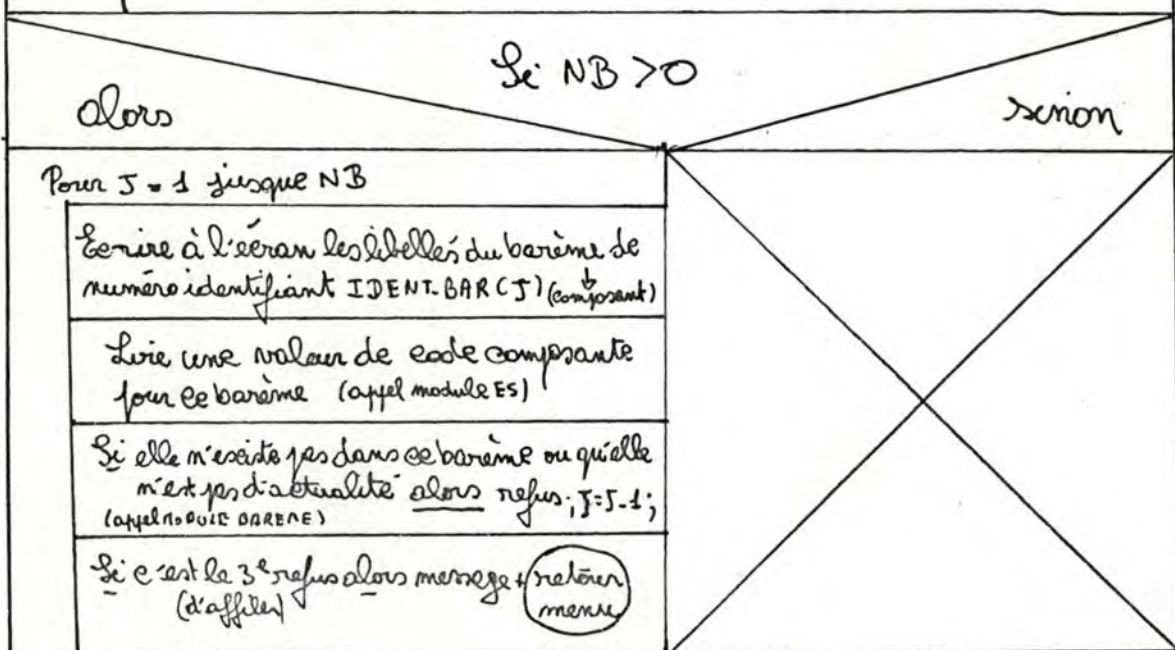 Si NB > 0
alors
sinon
Pour J = 1 jusque NB
Ecrire à l'écran les libellés du barème de
numéro identifiant IDENT-BAR(J) (composant)
Lire une valeur de code composante
pour ce barème (appel module ES)
Si elle n'existe pas dans ce barème ou qu'elle
n'est pas d'actualité alors refus; J=J-1;
(appel MODULE BAREME)
Si c'est le 3e refus alors message + retour
(d'affilée) menu